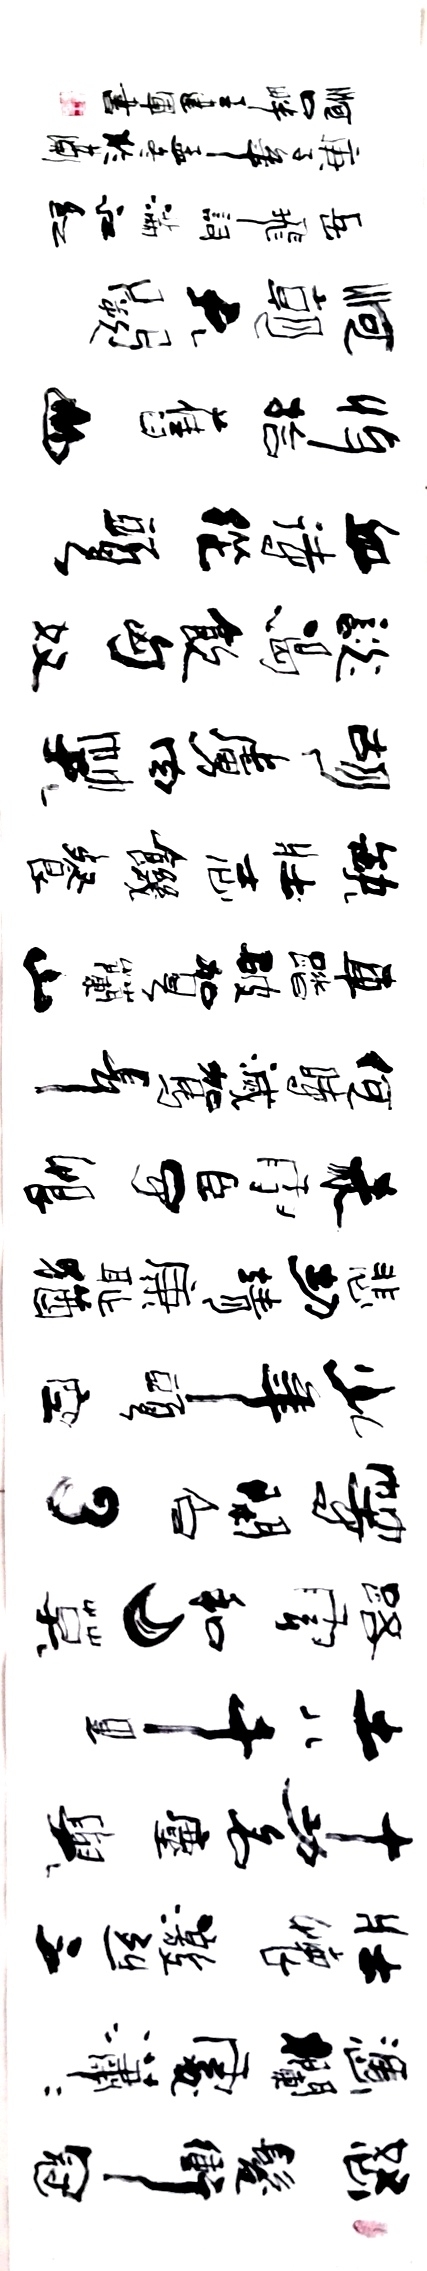 怒髮衝冠
憑闌處瀟：
壯懷激烈三
十功名塵與
土八千里
路雲和月莫
等閒白了
少年頭空
悲切靖康恥猶
未雪臣子恨
何時滅駕長
車踏破賀蘭山
缺壯志飢餐
胡虜肉笑
談渴飲匈奴
血待從頭
收拾舊山
河朝天闕
岳飛詞滿江紅
庚子年於蘭
河畔王建軍書